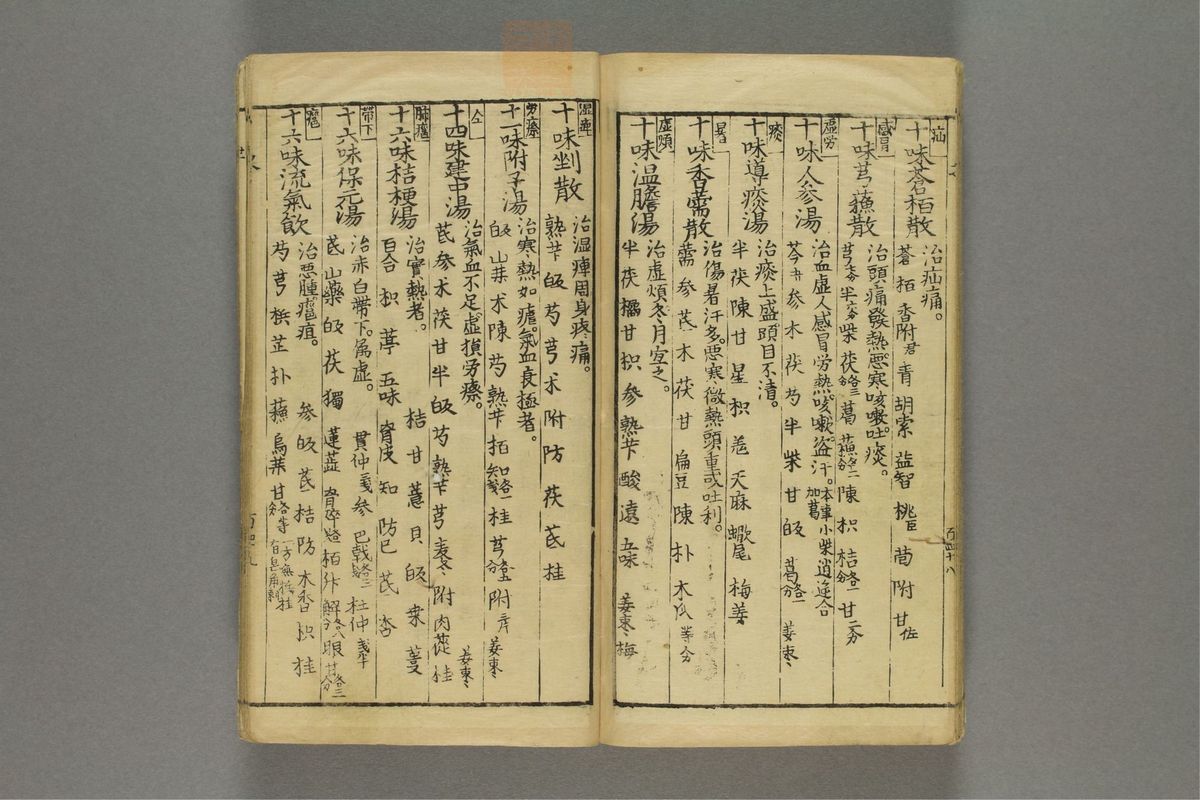 疝
十味蒼栢散
治疝痛。
蒼 栢 香附君 青 胡索 益智 桃臣 茴 附 甘佐
感冒
十味芎蘓散
治頭痛發熱。惡寒咳嗽。吐痰。
半 柴 茯各三分 葛 蘓各二分 陳 枳 桔各一分 甘二分
虛労
十味人参湯
治血虛人感冒労熱。咳嗽盜汗。本車小柴逍遥合加葛
芩 参 朮 茯 芍 半 柴 甘 皈 葛各一分 姜枣
痰
十味導痰湯
治痰上盛頭目不清。
半 茯 陳 甘 星 枳 羗 天麻 蠍尾 梅 姜
暑
十味香薷散
治傷暑汗多。惡寒微熱頭重或吐利。
薷 参 芪 朮 茯 甘 扁豆 陳 朴 木瓜 等分
虛煩
十味温膽湯
治虛煩。冬月宜之。
半 茯 橘 甘 枳 参 熟苄 酸 遠 五味 姜枣梅
湿痺
十味剉散
治湿痺周身疼痛。
熟苄 皈 芍 芎 朮 附 防 茯 芪 桂
労瘵
十一味附子湯
治寒熱如瘧。氣血衰極者。
皈 山茱 朮 陳 芍 熟苄 栢 桂 芎 附 姜枣
仝
十四味建中湯
治氣血不足。虛損労瘵。
芪 参 朮 茯 甘 半 皈 芍 熟苄 芎 麦冬 附 肉蓯 桂 姜枣
肺癰
十六味桔梗湯
治實熱者。
桔 甘 薏 貝 皈 桒 蔞
百合 枳 葶 五味 知 防已 芪 杏
帯下
十六味保元湯
治赤白帯下。属虛。
貫仲 参 巴戟 杜仲
芪 山藥 皈 茯 獨 蓮蕋 栢 甘 眼
癰
十六味流氣飲
治惡腫癰疽。
参 皈 芪 桔 防 木香 枳 桂
芍 芎 梹 芷 朴 蘓 烏藥 甘